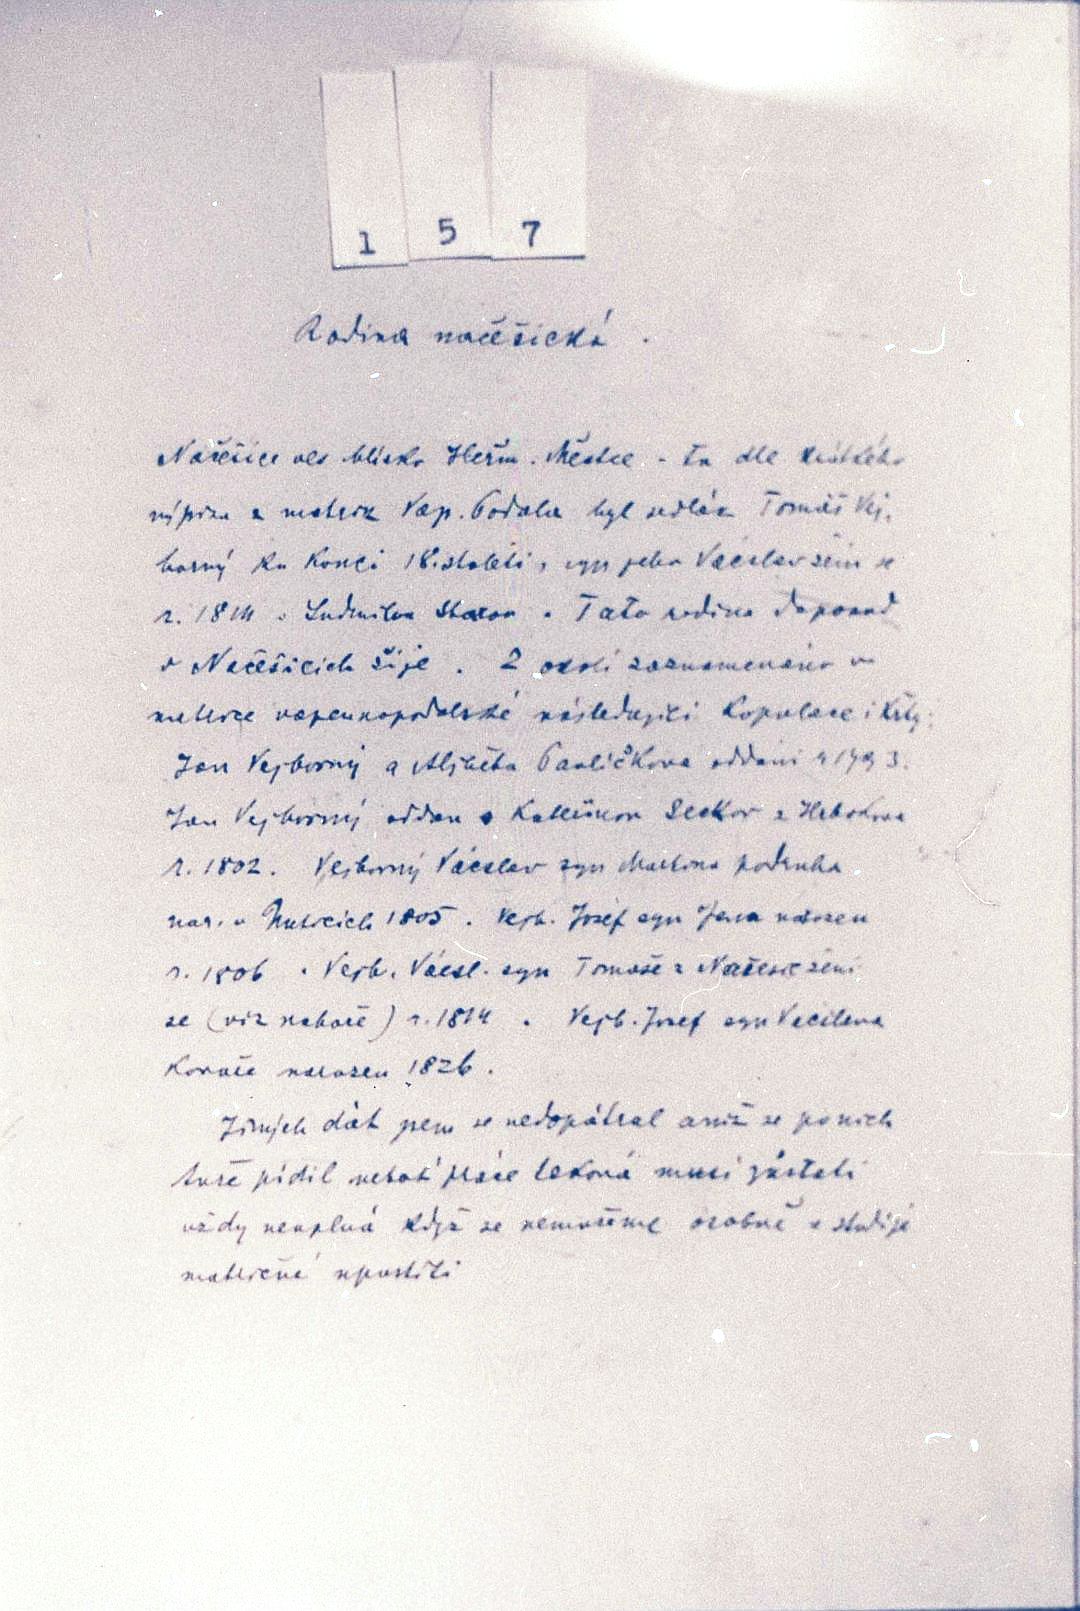 1 5 7
Rodina načešická.
Načešice ves blízko Heřm. Městce - tu dle krátkého
výpisu z matrik Vap. Podola byl sedlák Tomáš Vej.
borný ku konci 18. století, syn jeho Václav žení se
r. 1814 s Ludmilou . Tato rodina doposud
v Načešicích žije. Z okolí zaznamenáno v
matrice vapennopodolské následující kopulace i křty:
Jan Vejborný a Alžběta Pavlíčkova oddáni r 1793.
Jan Vejborný oddán s Kateřinou z
r. 1802. Vejborný Václav syn Martina podruha
nar. v 1805. Vejb. Josef syn Jana narozen
r. 1806. Vejb. Václ. syn Tomáše z Načešic žení
se (viz nahoře) r. 1814. Vejb. Josef syn Václava
kováře narozen 1826.
Jiných dát jsem se nedopátral aniž se po nich
tuze pídil neboť práce taková musí zůstati
vždy neúplná když se nemůžeme osobně v studije
matriční spustiti